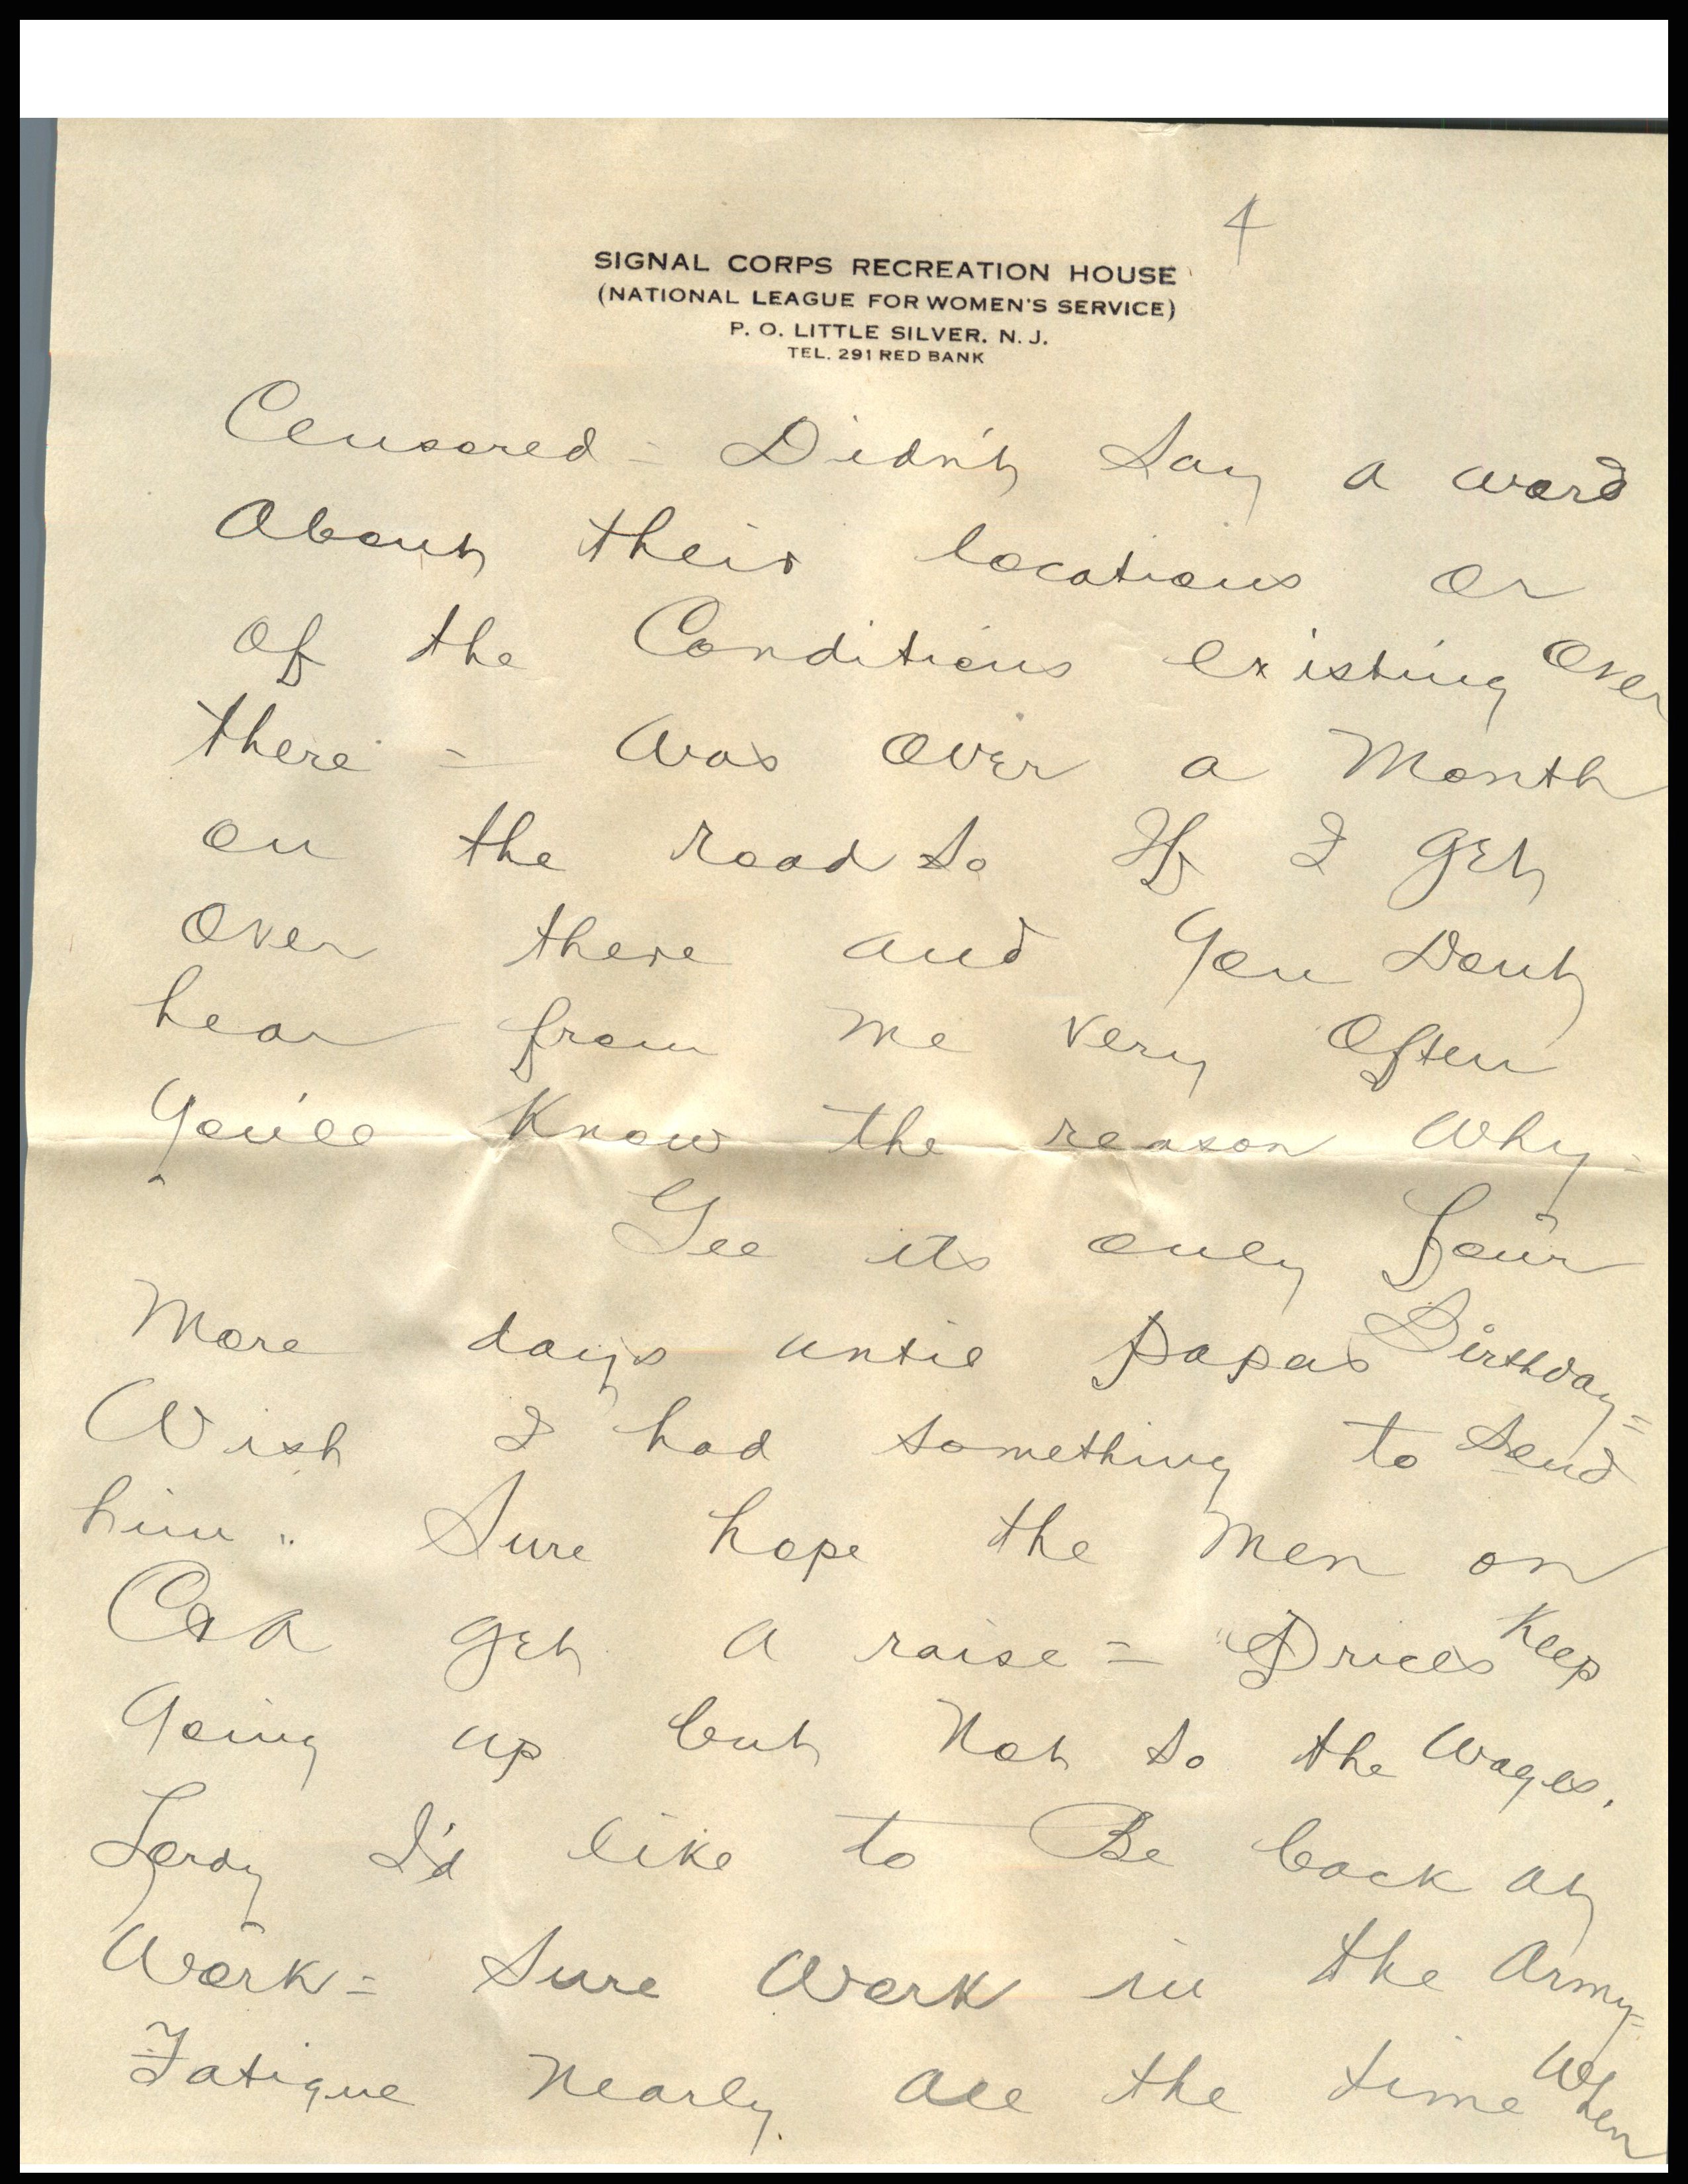 4
SIGNAL CORPS RECREATION HOUSE
(NATIONAL LEAGUE FOR WOMEN'S SERVICE)
P. O. LITTLE SILVER. N. J.
TEL. 291 RED BANK
Censored = Didn't Say a word
About their locations or
of the Conditions existing over
there = Was over a Month
on the road So If I get
over there and You Dont
hear from me very Often
You'll Know the reason Why =
Gee its only four
More days until papas Birthday =
Wish I had something to Send
him .. Sure hope the Men on
get a raise = Prices Keep
Going up but Not So the Wages.
Lordy I'd like to Be back at
Work = Sure Work in the Army =
Fatigue Nearly all the time When